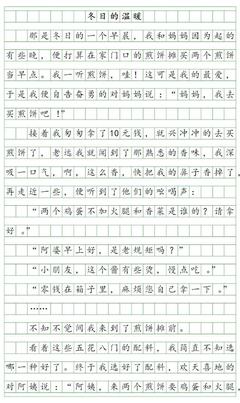 冬日的温暖
那是冬日的一个早晨，我和妈妈因为起的
有些晚，便打算在家门口的煎饼摊买两个煎饼
当早点。我一听煎饼，哇！这可是我的最爱，
于是我便自告奋勇的对妈妈说：“妈妈，我去
买煎饼吧！”
接着我匆匆拿了10元钱，就兴冲冲的去买
煎饼了，老远我就闻到了那熟悉的香味，我深
吸一口气，啊，这么香，快把我的鼻子香掉了，
再走近一些，便听到了他们的吆喝声：
“两个鸡蛋不加火腿和香菜是谁的？请拿
好。”
“阿婆早上好，是老规矩吗？”
“小朋友，这个酱有些烫，慢点吃。”
“零钱在箱子里，麻烦您自己拿一下。”
……
不知不觉间我来到了煎饼摊前。
看着这些五花八门的配料，我简直不知选
哪一种好了。终于我选好了配料，欢天喜地的
对阿姨说：“阿姨，来两个煎饼要鸡蛋和火腿，